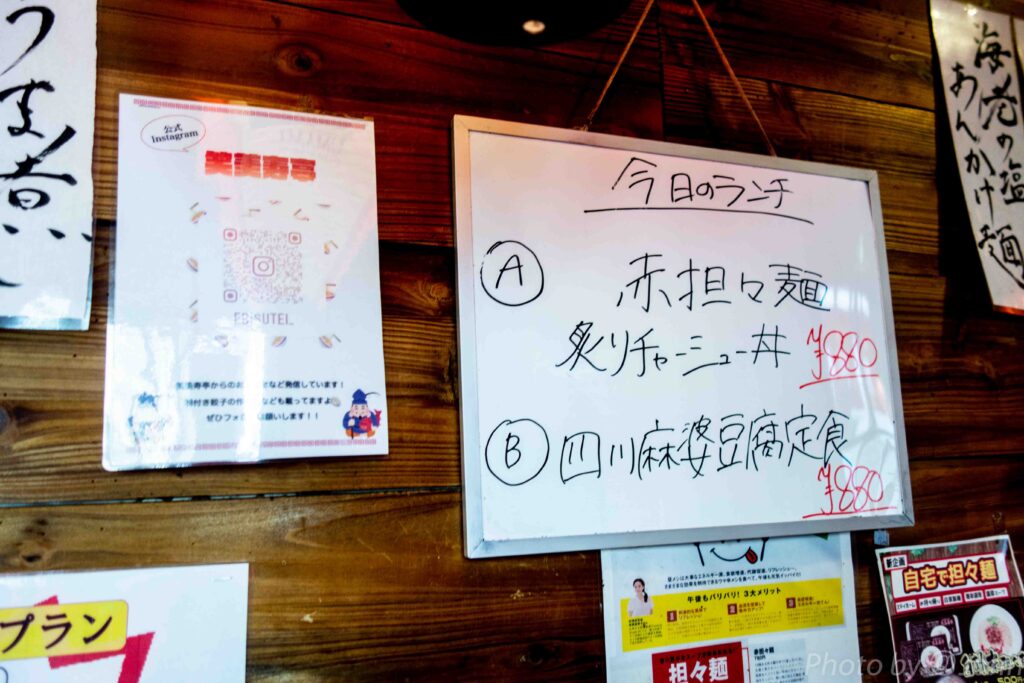 うま煮
公式
Instagram
笑美寿亭
EBISUTEI_
笑美寿亭からのお など発信しています!
付き餃子の作 なども載ってますよ
ぜひフォ 願いします!!
今日のランチ
A 赤担々麺
炙りチャーシュー丼 ¥880
B 四川麻婆豆腐定食
¥880
海老の塩
あんかけ麺
プラン
午後もバリバリ! 3大メリット
1
2
3
担々麺
新企画
自宅で担々麺
Photo by